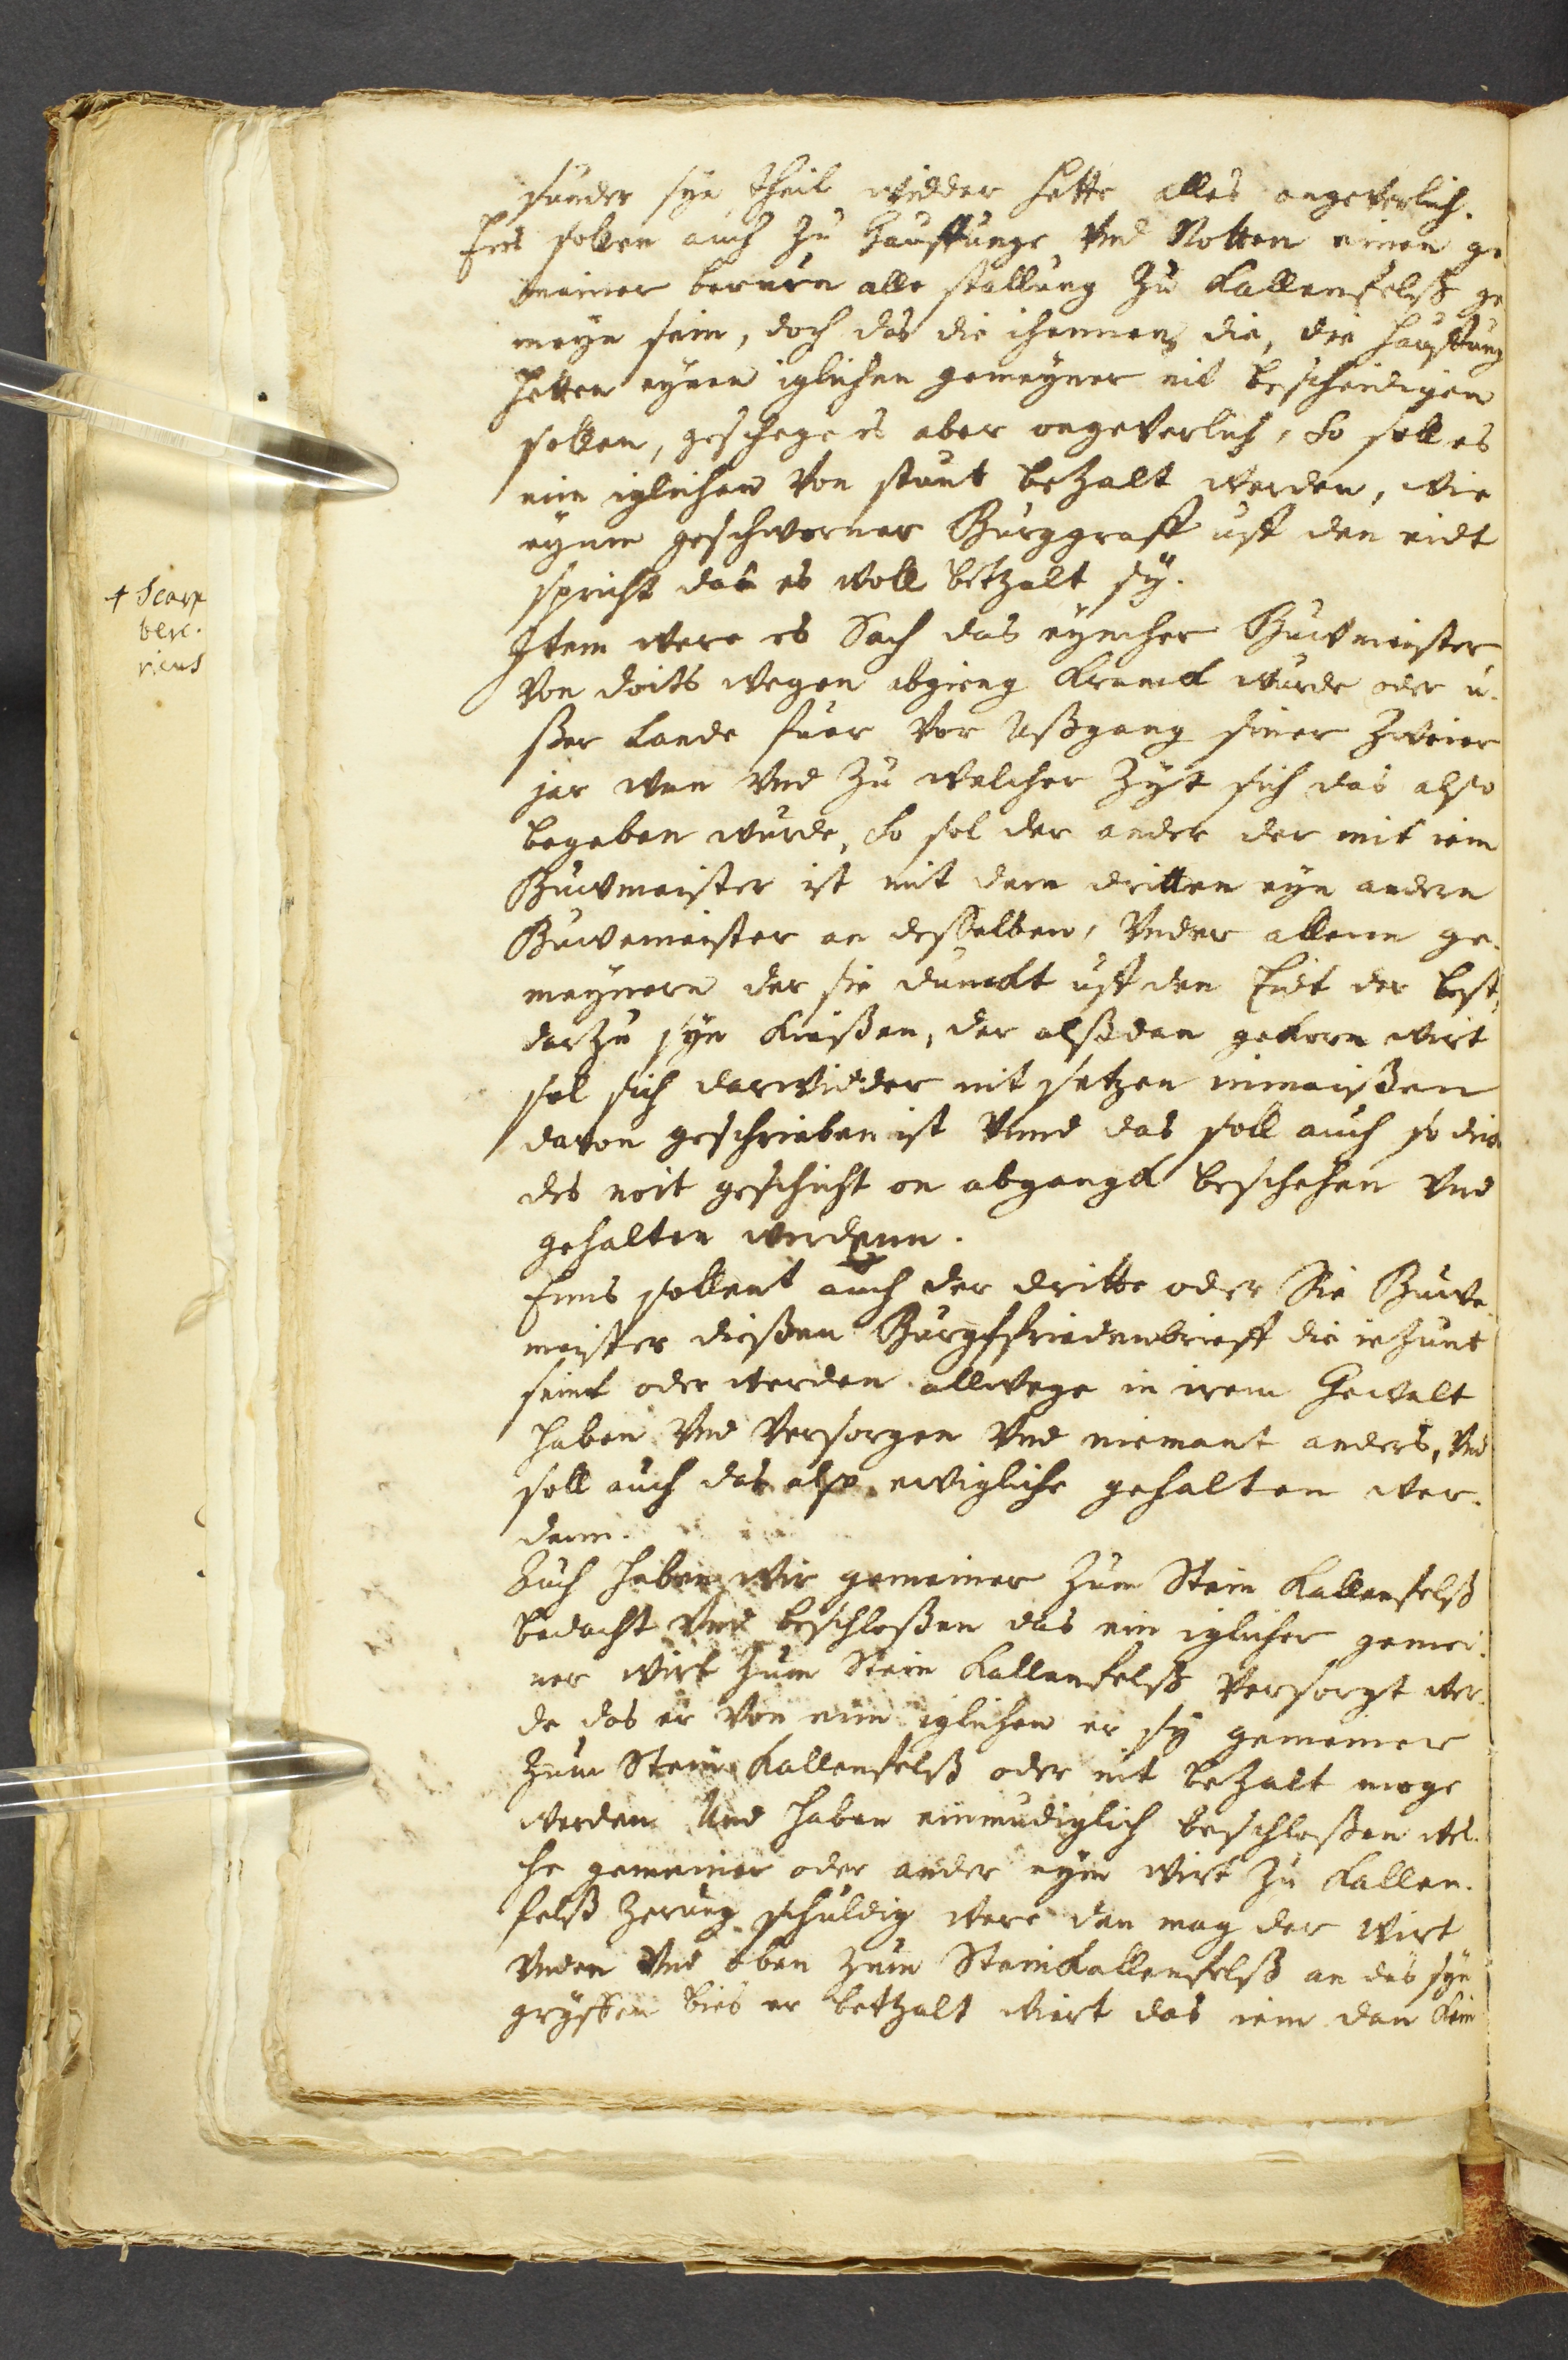 sunder syn theil widder hette alles ongeverlich.
Eins sollen auch zu Hauffunge Und Notten einen ge
meiner berurn alle stallung zu Kallenfelß ge
meyn sein, doch das die ihennen die, die Hauffung
Hetten eynen iglichen gemeyner nit beschedigen
sollen, geschege es aber ongeverlich, So soll es
eim iglichen Von stunt bezalt werden, wie
eynn geschworner Burggraff uff den eidt
spricht das es woll betzalt sy.
+ Scarp
ber.
ricus
Item were es Sach das eyncher Buwmeister
Von doits wegen abgieng kranck wurde oder u.
ßer Lande fuer Vor Ußgang siner Zweier
jar wan Und zu welcher Zyt sich das also
begeben wurde, So sol der ander der mit iem
Buwmeister ist mit dem dritten eyn andern
Buwemeister an desselben, Under allenn ge.
meynern der sie dunckt uff den Eidt der best,
darzu syn kießen, der alßdan gekorn wirt
sol sich darwidder nit setzen inmaißen
davon geschrieben ist Unnd das soll auch so dick
des noit geschicht on abganck beschehen Und
gehalten werdenn.
Enns sollent auch der dritte oder Sie Buwe
meister dießen Burgkfriedenbrieff die ietzunt
seint oder werden allwege in irem Gewalt
haben Und Versorgen Und niemant anders, Und
soll auch das also ewigliche gehalten wer.
denn.
Auch haben wir gemeiner zum Stein Kallenfelß
bedacht Und beschloßen das ein iglicher gemei.
ner wirt zum Stein Kallenfelß Versorgt wer.
de das er Von eim iglichen er sy gemeiner
zum Stein Kallenfelß oder nit bezalt moge
werden Und haben einmudiglich beschloßen wel.
che gemeiner oder ander eym wirt zu Kallen.
felß Zerung schuldig were den mag der wirt
Unden Und oben zum Steinkallenfelß an das syn
gryffen bies er betzalt wiert das iem dan kein